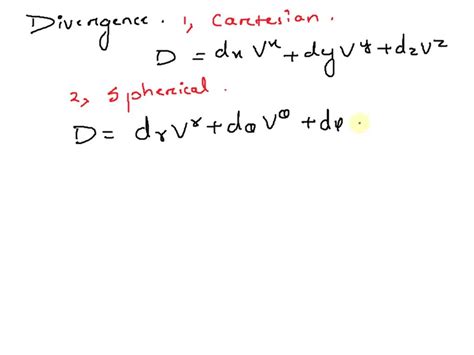 Divergence. 1, Caretesian.
D = dx V^x + dy V^y + dz V^z
2, Spherical.
D = dr V^r + dθ V^θ + dφ